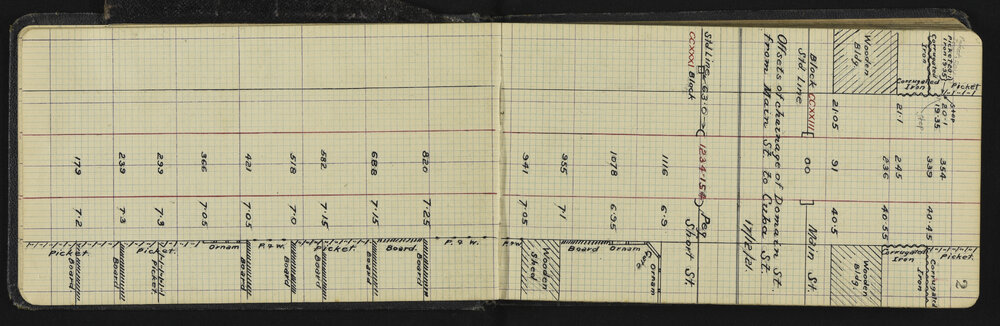 2
Picket
Picket.
354
Stop
20.1
Corrugated
Iron
19.35
339 40.45
Corrugated
Iron
Stop
Corrugated
Iron
21.1 245
236 40.55
Corrugated
Iron
Wooden
Bldg.
21.05 91 40.5
Wooden
Bldg.
Block CCXXIII 00 Main St.
Std Line
Offsets of chainage of Domain St.
from Main St. to Cuba St.
17/12/21.
Std Line 63.0 1234.154 Peg Short St.
CCXXXI Block
1116 6.9
Ornam
Gate
1078 6.95
Ornam
Board
955 7.1
Wooden
Shed
941 7.05
P. & W.
P. & W.
820 7.25
Board
Board.
688 7.15
Board
Picket.
582 7.15
Board
518 7.0
Board
P. & W.
421 7.05
Board
Ornam
366 7.05
299 7.3
Picket.
Picket.
239 7.3
Board
179 7.2
Board
Picket.